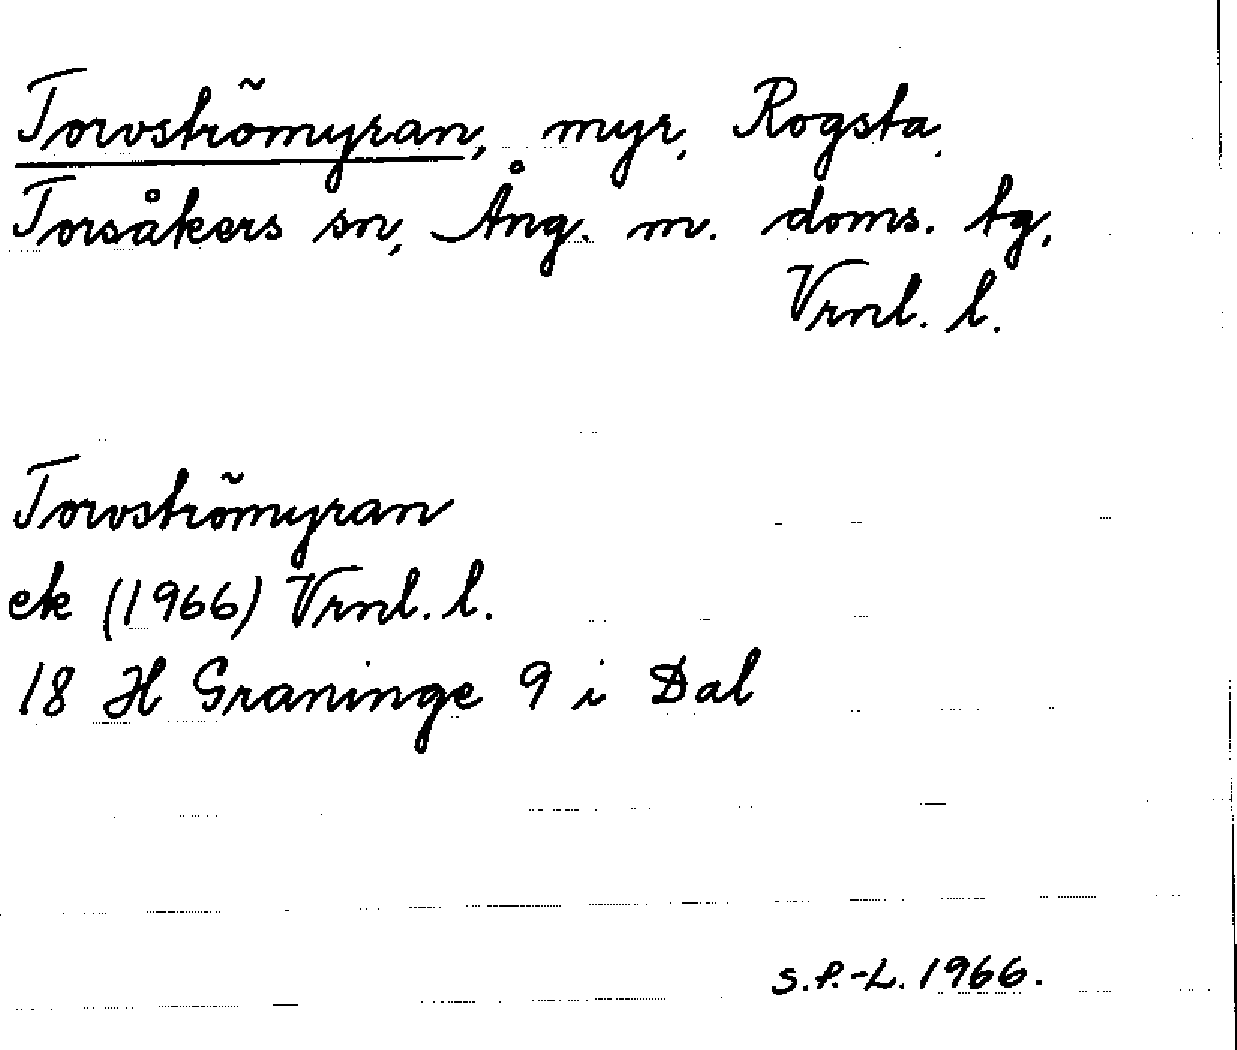 Torvströmyran, myr, Rogsta,
Torsåkers sn, Ång. m. doms. tg,
Vrml. l.
Torvströmyran
ek (1966) Vrml. l.
18 H Graninge 9 i Dal
S.P.-L. 1966.